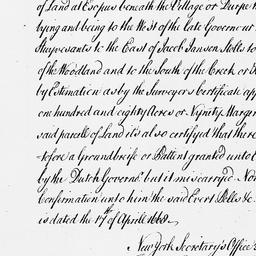 of Land at Esopus beneath the Village or Dorpe
lying and being to the West of the late Governour
Stuyvesants to the East of Jacob Jansen Stolls to
of the Woodland and to the South of the Creek or
by Estimation as by the Surveyors Certificate
one hundred and eighty Acres or Nynity Margen
said parcell of Land its also certified that there
tofore a Groundbrife or Pattent granted unto
by the Dutch Govern.t but it miscarried. Now
Confirmation unto him the said Evert Pells &c
is dated the 17th of April 1668
New York Secretary's Office